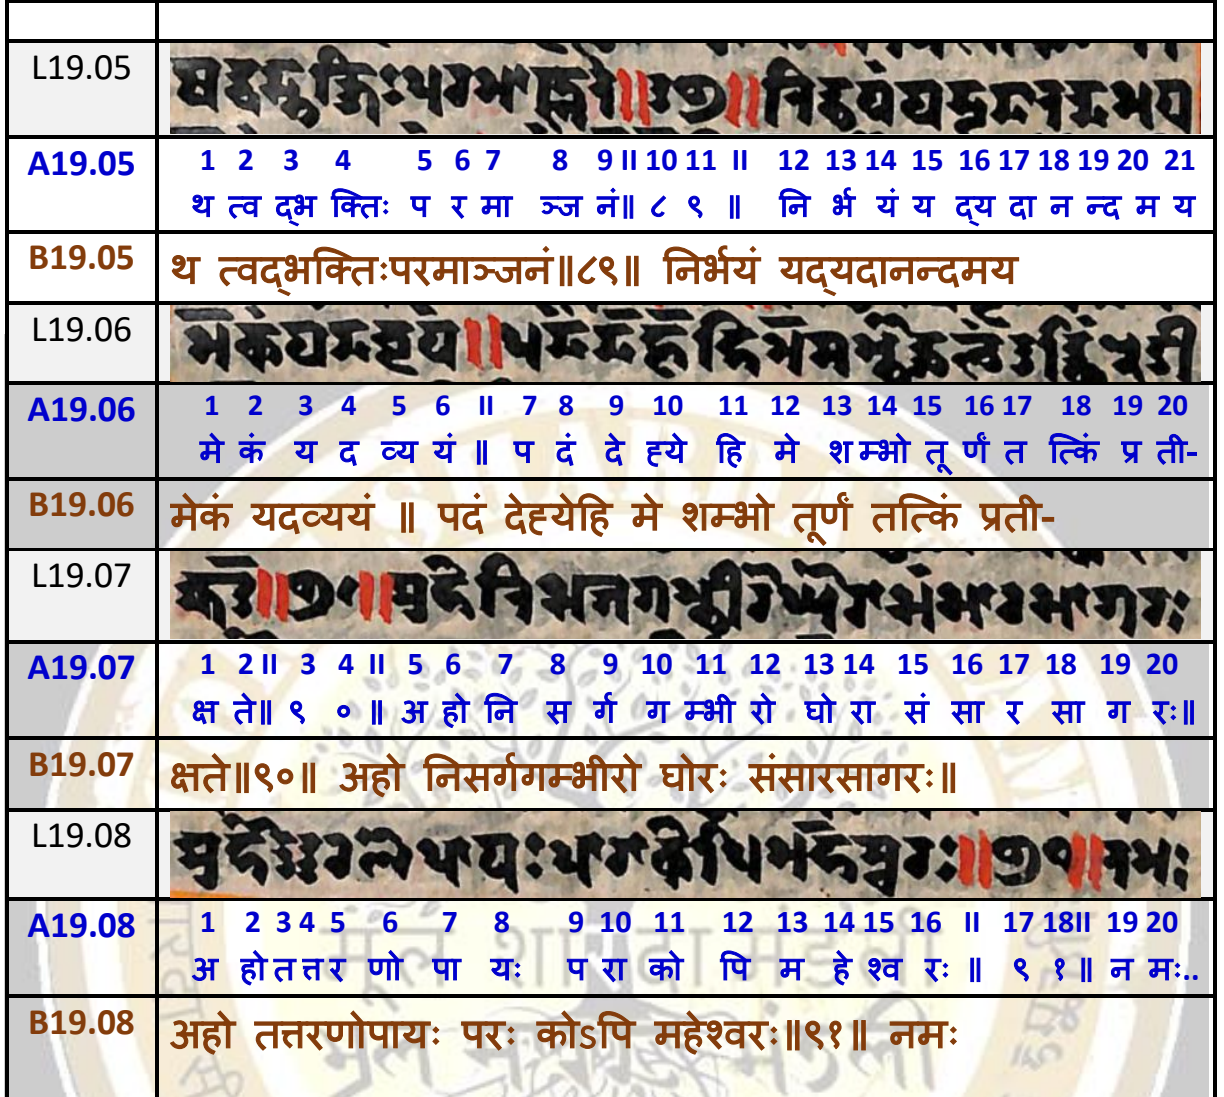 L19.05
षद्दद्भक्तिःपरमाञ्जनं॥𑇘𑇙॥
A19.05 1 2 3 4 5 6 7 8 9 II 10 11 II 12 13 14 15 16 17 18 19 20 21
थ त्व द्भ क्तिः प र मा ञ्ज नं॥ ८ ९ ॥ नि र्भ यं य द्य दा न न्द म य
B19.05 थ त्वद्भक्तिःपरमाञ्जनं॥८९॥ निर्भयं यद्यदानन्दमय
L19.06
A19.06 1 2 3 4 5 6 II 7 8 9 10 11 12 13 14 15 16 17 18 19 20
मे कं य द व्य यं ॥ प दं दे ह्ये हि मे श म्भो तू र्णं त त्किं प्र ती-
B19.06 मेकं यदव्ययं ॥ पदं देह्येहि मे शम्भो तूर्णं तत्किं प्रती-
L19.07
A19.07 1 2 II 3 4 II 5 6 7 8 9 10 11 12 13 14 15 16 17 18 19 20
क्ष ते॥ ९ ० ॥ अ हो नि स र्ग ग म्भी रो घो रा सं सा र सा ग रः॥
B19.07 क्षते॥९०॥ अहो निसर्गगम्भीरो घोरः संसारसागरः॥
L19.08
A19.08 1 2 3 4 5 6 7 8 9 10 11 12 13 14 15 16 II 17 18II 19 20
अ हो त त्त र णो पा यः प रा को पि म हे श्व रः ॥ ९ १ ॥ न मः..
B19.08 अहो तत्तरणोपायः परः कोऽपि महेश्वरः॥९१॥ नमः